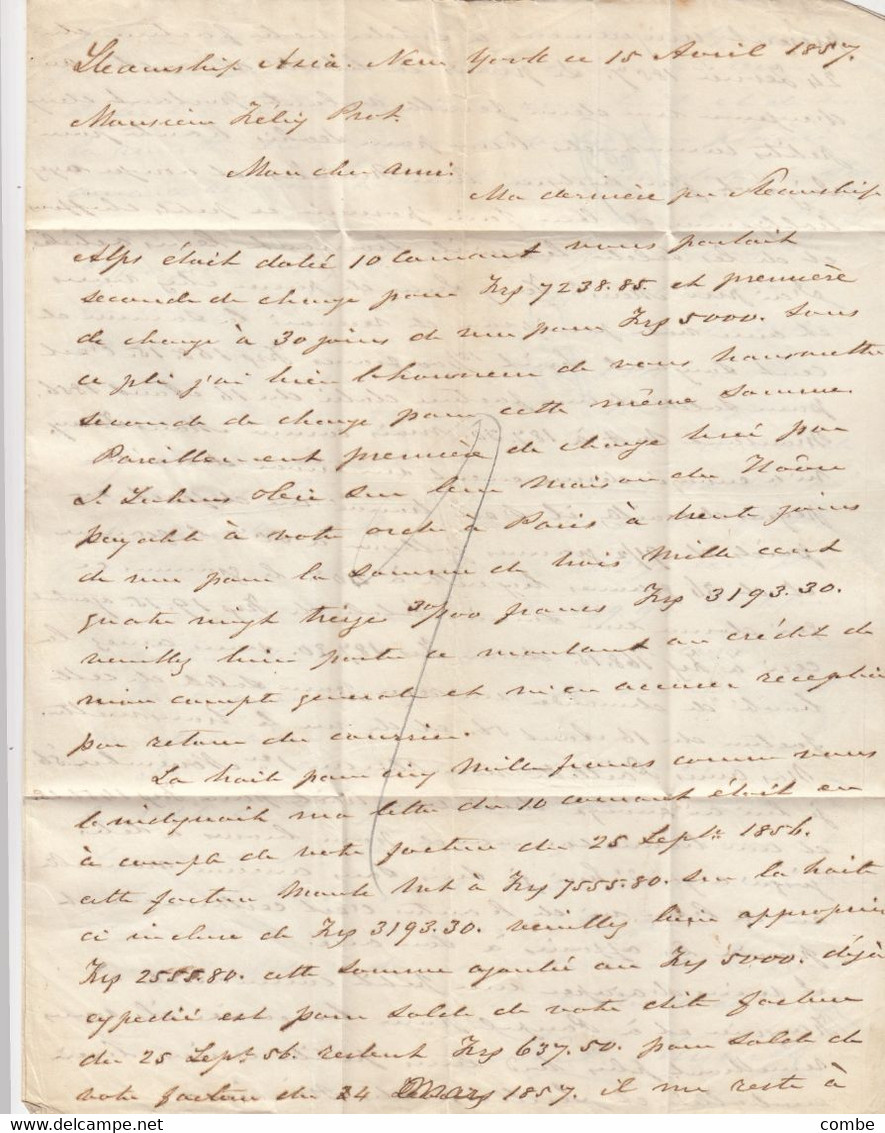 Steamship Asia. New York ce 15 Avril 1857.
Monsieur Félix Prot.
Mon cher ami.
Ma dernière par Steamship
Alps était daté 10 Courant vous portait
seconde de change pour Frs 7238.85. et première
de change à 30 jours de vue pour Frs 5000. Sous
ce pli j'ai bien l'honneur de vous transmettre
seconde de change pour cette même somme.
Pareillement première de change tiré par
sur leur maison du Hâvre
payable à votre ordre à Paris à trente jours
de vue pour la somme de trois Mille cent
quatre vingt treize 30/100 francs Frs 3193.30.
veuillez bien porter ce montant au crédit de
mon compte general et m'en accuser reception
par retour du courrier.
La traite pour cinq Mille francs comme vous
l'indiquait ma lettre du 10 courant était en
à compte de votre facture du 25 Septbr 1856.
cette facture Monte Net à Frs 7555.80. sur la traite
ci incluse de Frs 3193.30. veuillez bien approprier
Frs 2555.80. cette somme ajoutée au Frs 5000. déjà
expedié est pour solde de votre dite facture
du 25 Sept 56. restent Frs 637.50. pour solde de
votre facture du 24 Mars 1857. il me reste à
combe